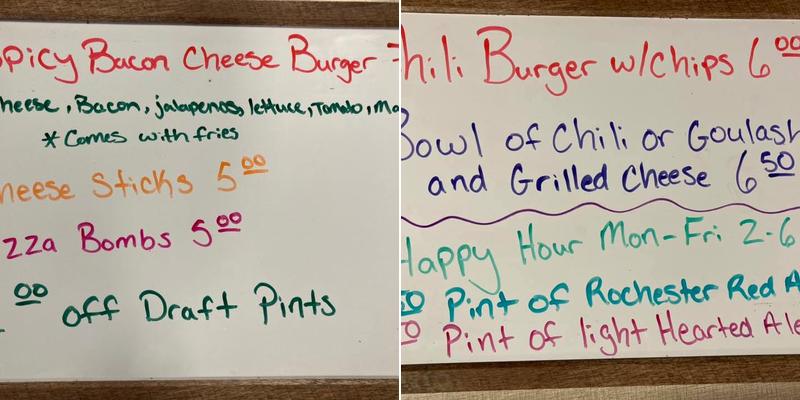 Spicy Bacon Cheese Burger 7
Cheese, Bacon, jalapenos, lettuce, Tomato, Ma
* Comes with fries
Cheese Sticks 5 00
zza Bombs 5 00
00 off Draft Pints
hili Burger w/chips 6 00
Bowl of Chili or Goulash
and Grilled Cheese 6 50
Happy Hour Mon-Fri 2-6
50 Pint of Rochester Red A
50 Pint of light Hearted Ale